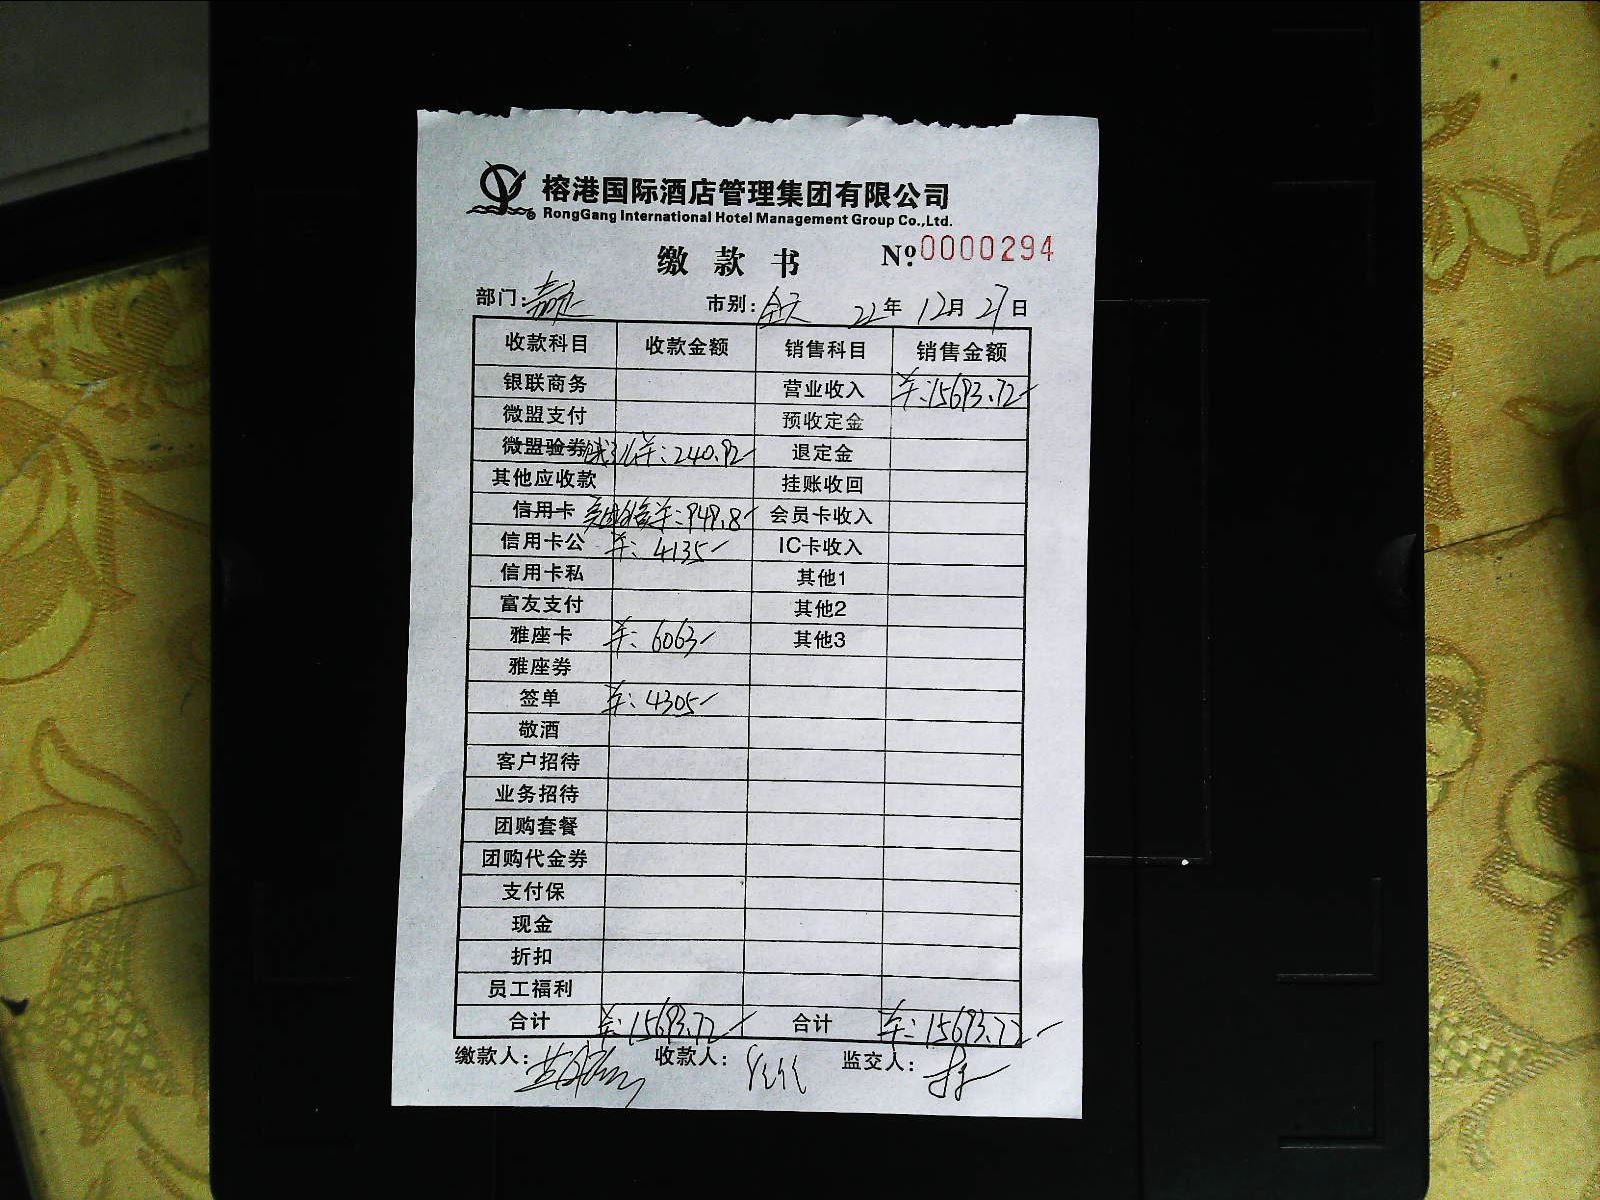 榕港国际酒店管理集团有限公司
RongGang International Hotel Management Group Co.,Ltd.
缴款书 Nº:0000294
部门: 市别:全天 22年12月27日
收款科目 收款金额 销售科目 销售金额
银联商务 营业收入 ¥:15693.72
微盟支付 预收定金
微盟验券 ¥:240.92 退定金
其他应收款 挂账收回
信用卡 ¥:949.8 会员卡收入
信用卡公 ¥:4135 IC卡收入
信用卡私 其他1
富友支付 其他2
雅座卡 ¥:6063 其他3
雅座券
签单 ¥:4305
敬酒
客户招待
业务招待
团购套餐
团购代金券
支付保
现金
折扣
员工福利
合计 ¥:15693.72 合计 ¥:15693.72
缴款人: 收款人: 监交人: